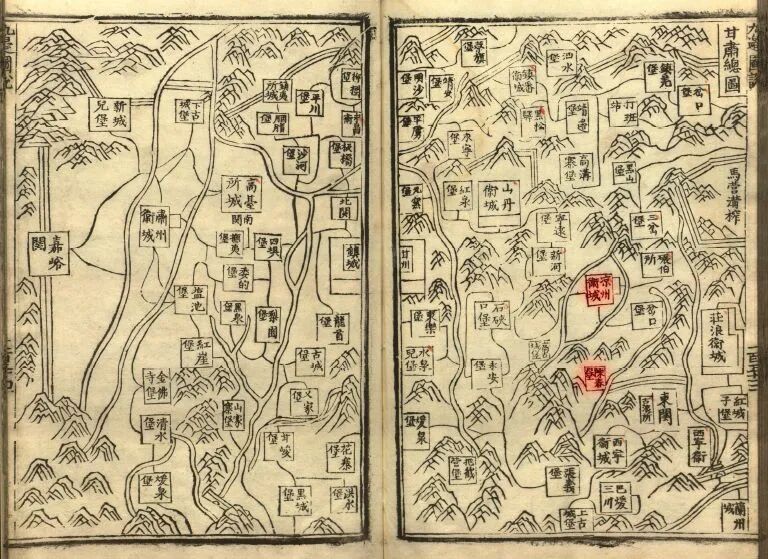 甘肅總圖
鎮羌堡
岔口堡
打班
泗水堡
鎮番衛城
靖邊
黑松
永寧堡
高溝寨
黑山堡
馬營溝
山丹衛城
紅泉堡
寧遠堡
三岔堡
新河堡
涼州衛城
甘州
石峽口堡
岔口
莊浪衛城
東樂堡
水泉兒堡
永安堡
東關
古浪所
紅城子堡
西寧衛城
暖泉堡
張義堡
巴暖三川
上古城堡
蘭州城
明沙堡
平虜
柳樹堡
平川堡
鎮夷所城
胭脂堡
沙河堡
板橋堡
下古城堡
新城兒堡
高臺所城
南關
北關
鎮城
肅州衛城
撫夷堡
四壩堡
嘉峪關
鹽池堡
黑泉
梨園堡
龍首堡
紅崖堡
古城堡
金佛寺堡
清水堡
甘峻堡
花寨堡
暖泉堡
黑城堡
洪水堡